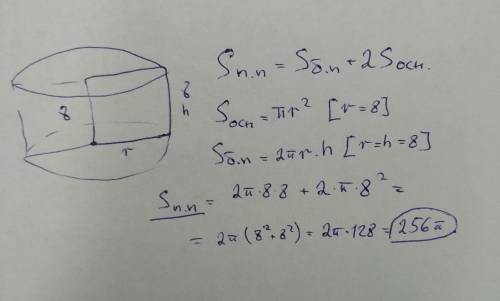 8
8
h
r
Sп.п = Sб.п + 2Sосн.
Sосн = πr² [r=8]
Sб.п = 2πr·h [r=h=8]
Sп.п = 2π·8 8 + 2·π·8² =
= 2π(8²+8²) = 2π·128 = 256π